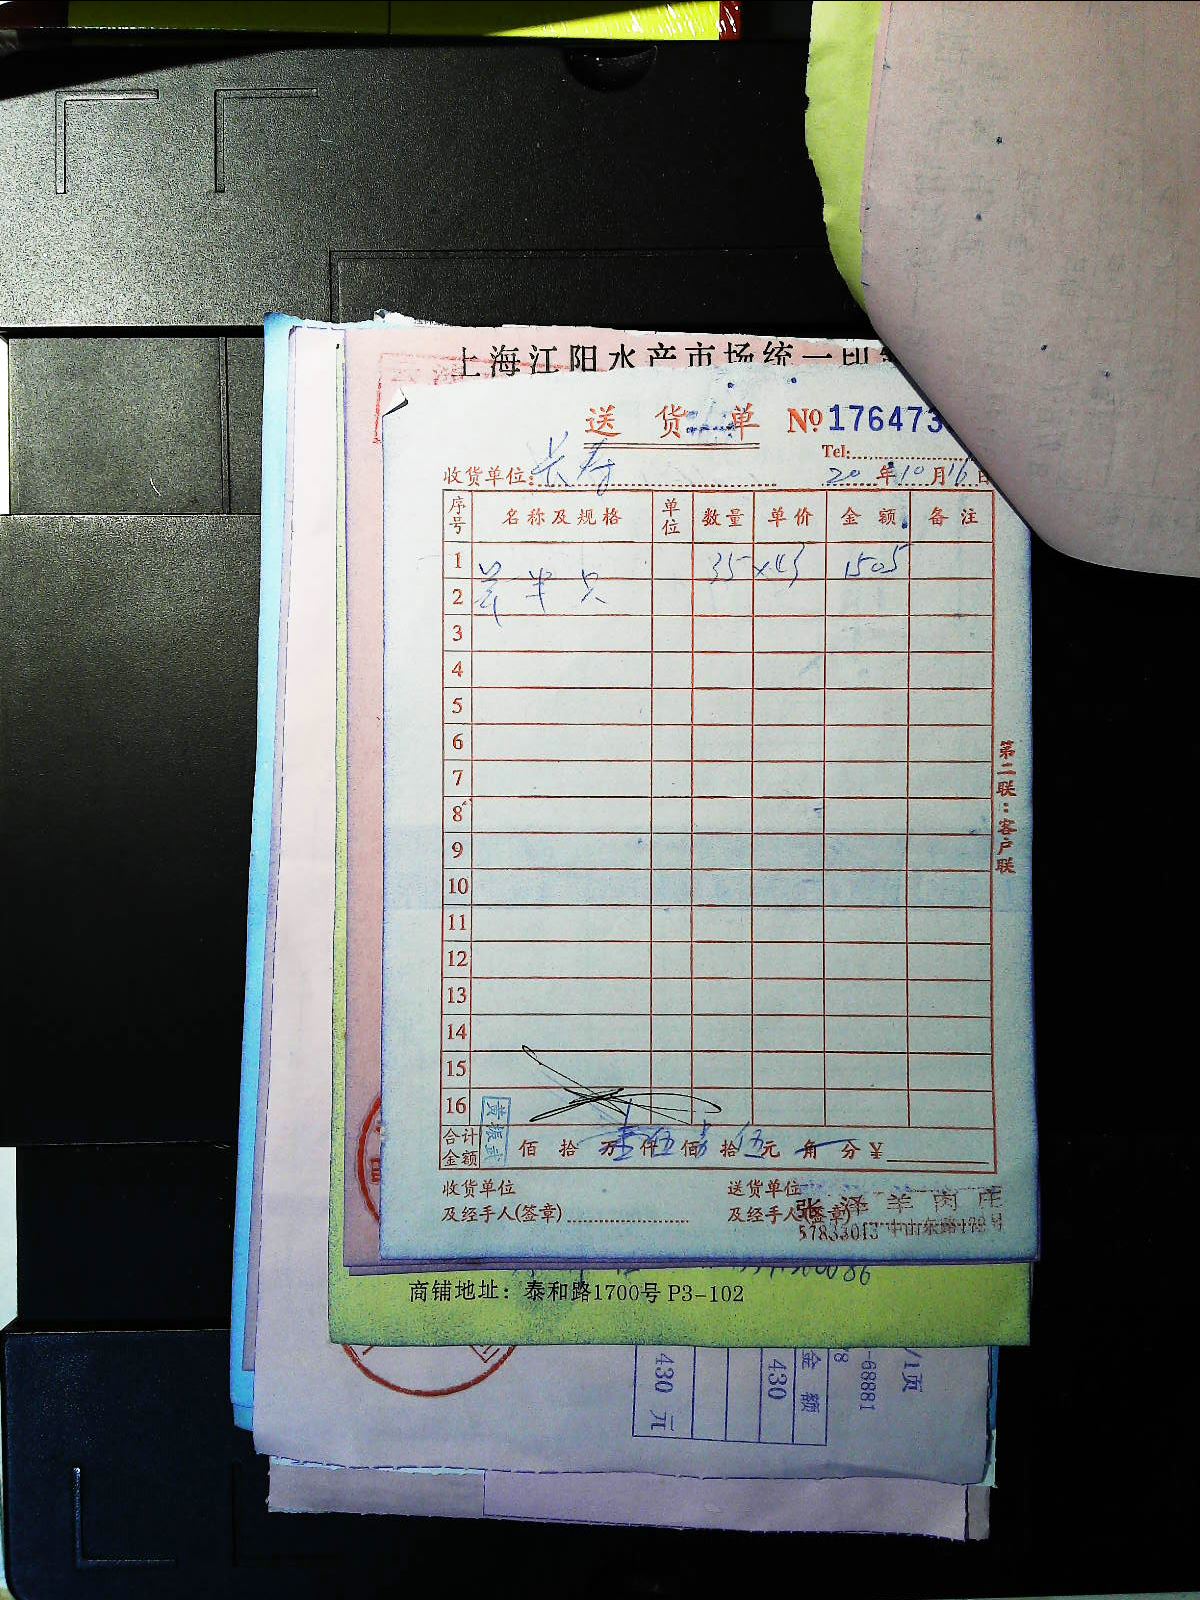 上海江阳水产市场统一印
送货单 №176473
Tel:
收货单位: 长寿 20年10月16日
序号 名称及规格 单位 数量 单价 金额 备注
1 35×43 1505
2 羊半只
3
4
5
6
7
8
9
10
11
12
13
14
15
16
合计金额 佰拾万壹仟伍佰拾伍元角分¥
黄振武
收货单位 送货单位
及经手人(签章) 及经手人(签章)
张泽羊肉庄
57833013 中山东路
第二联:客户联
商铺地址: 泰和路1700号 P3-102
/1页
-68881
78
金额
430
430 元